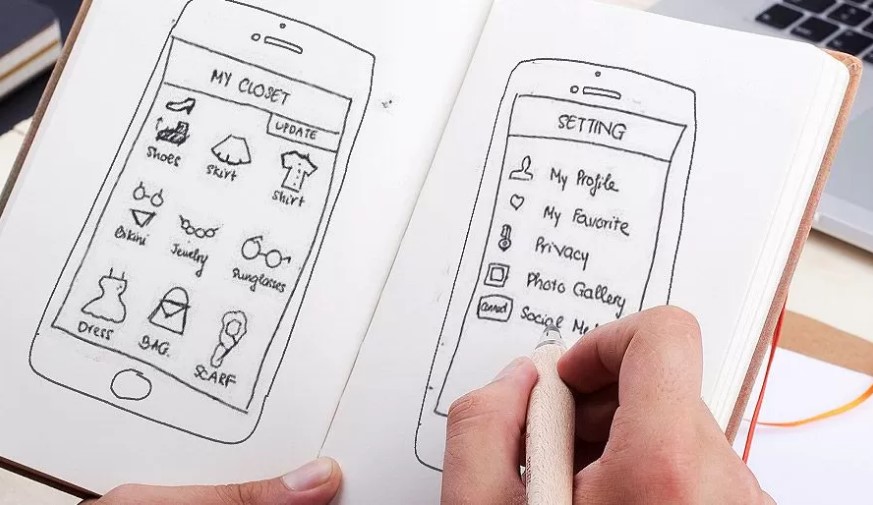 MY CLOSET
UPDATE
Shoes
Skirt
Shirt
Bikini
Jewelry
Sunglasses
Dress
BAG.
SCARF
SETTING
My Profile
My Favorite
Privacy
Photo Gallery
Social